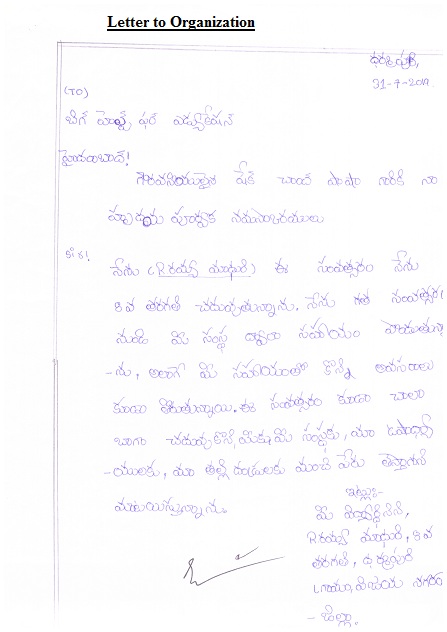 Letter to Organization
ధర్మపురి,
31-7-2017
(TO)
బిగ్ హెల్ప్ ఫర్ ఎడ్యుకేషన్
హైదరాబాద్!
గౌరవనియులైన షేక్ చాంద్ పాషా గారికి నా
హృదయ పూర్వక నమస్కారములు
నేను (R రమ్య మాధురి) ఈ సంవత్సరం నేను
8వ తరగతి చదువుతున్నాను. నేను గత సంవత్సరం
నుండి మీ సంస్థ ద్వారా సహాయం పొందుతున్నా
-ను, అలాగే మీ సహాయంతో కొన్ని అవసరాలు
కూడా తీరుతున్నాయి. ఈ సంవత్సరం కూడా చాలా
బాగా చదువుకొని, మీకు, మీ సంస్థకు, మా ఉపాధ్యా
-యులకు, మా తల్లి దండ్రులకు మంచి పేరు తెస్తానని
మాటయిస్తున్నాను.
ఇట్లు:-
మీ విద్యార్థిని,
R రమ్య మాధురి, 8వ
తరగతి, ధర్మపురి
గ్రామం, విజయ నగరం
- జిల్లా.